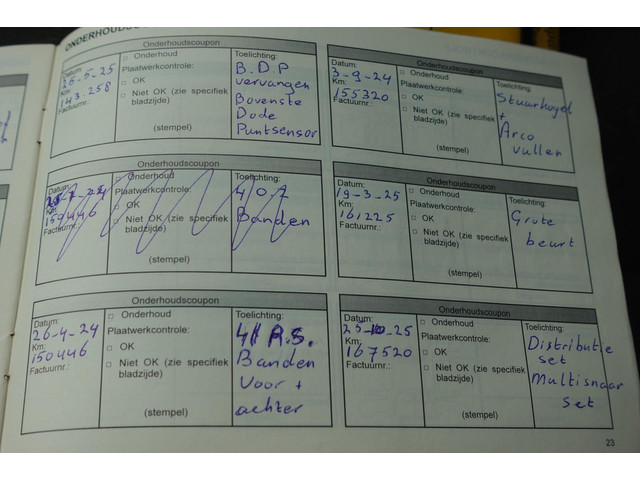 Onderhoudscoupon
Datum:
26-5-25
Km:
143.258
Factuurnr.:
□ Onderhoud
Plaatwerkcontrole:
□ OK
□ Niet OK (zie specifiek
bladzijde)
(stempel)
Toelichting:
B.D.P
vervangen
Bovenste
Dode
Puntsensor
Onderhoudscoupon
Datum:
Km:
150446
Factuurnr.:
□ Onderhoud
Plaatwerkcontrole:
□ OK
□ Niet OK (zie specifiek
bladzijde)
(stempel)
Toelichting:
Banden
Onderhoudscoupon
Datum:
26-4-24
Km:
150446
Factuurnr.:
□ Onderhoud
Plaatwerkcontrole:
□ OK
□ Niet OK (zie specifiek
bladzijde)
(stempel)
Toelichting:
Banden
Voor +
achter
Onderhoudscoupon
Datum:
3-9-24
Km:
155320
Factuurnr.:
□ Onderhoud
Plaatwerkcontrole:
□ OK
□ Niet OK (zie specifiek
bladzijde)
(stempel)
Toelichting:
Stuurkogel
+
Airco
vullen
Onderhoudscoupon
Datum:
19-3-25
Km:
161225
Factuurnr.:
□ Onderhoud
Plaatwerkcontrole:
□ OK
□ Niet OK (zie specifiek
bladzijde)
(stempel)
Toelichting:
Grote
beurt
Onderhoudscoupon
Datum:
Km:
167520
Factuurnr.:
□ Onderhoud
Plaatwerkcontrole:
□ OK
□ Niet OK (zie specifiek
bladzijde)
(stempel)
Toelichting:
Distributie
set
Multisnaar
set
23